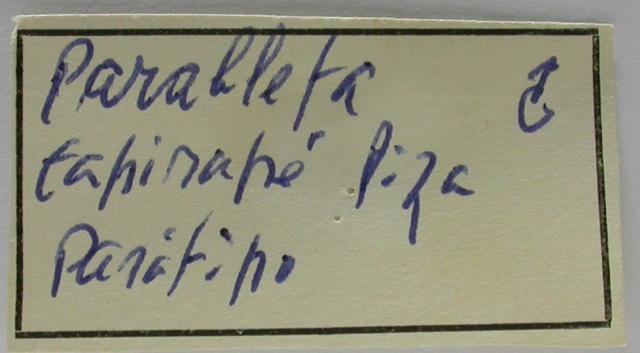 Parableta ♂
tapirapé Piza
Parátipo